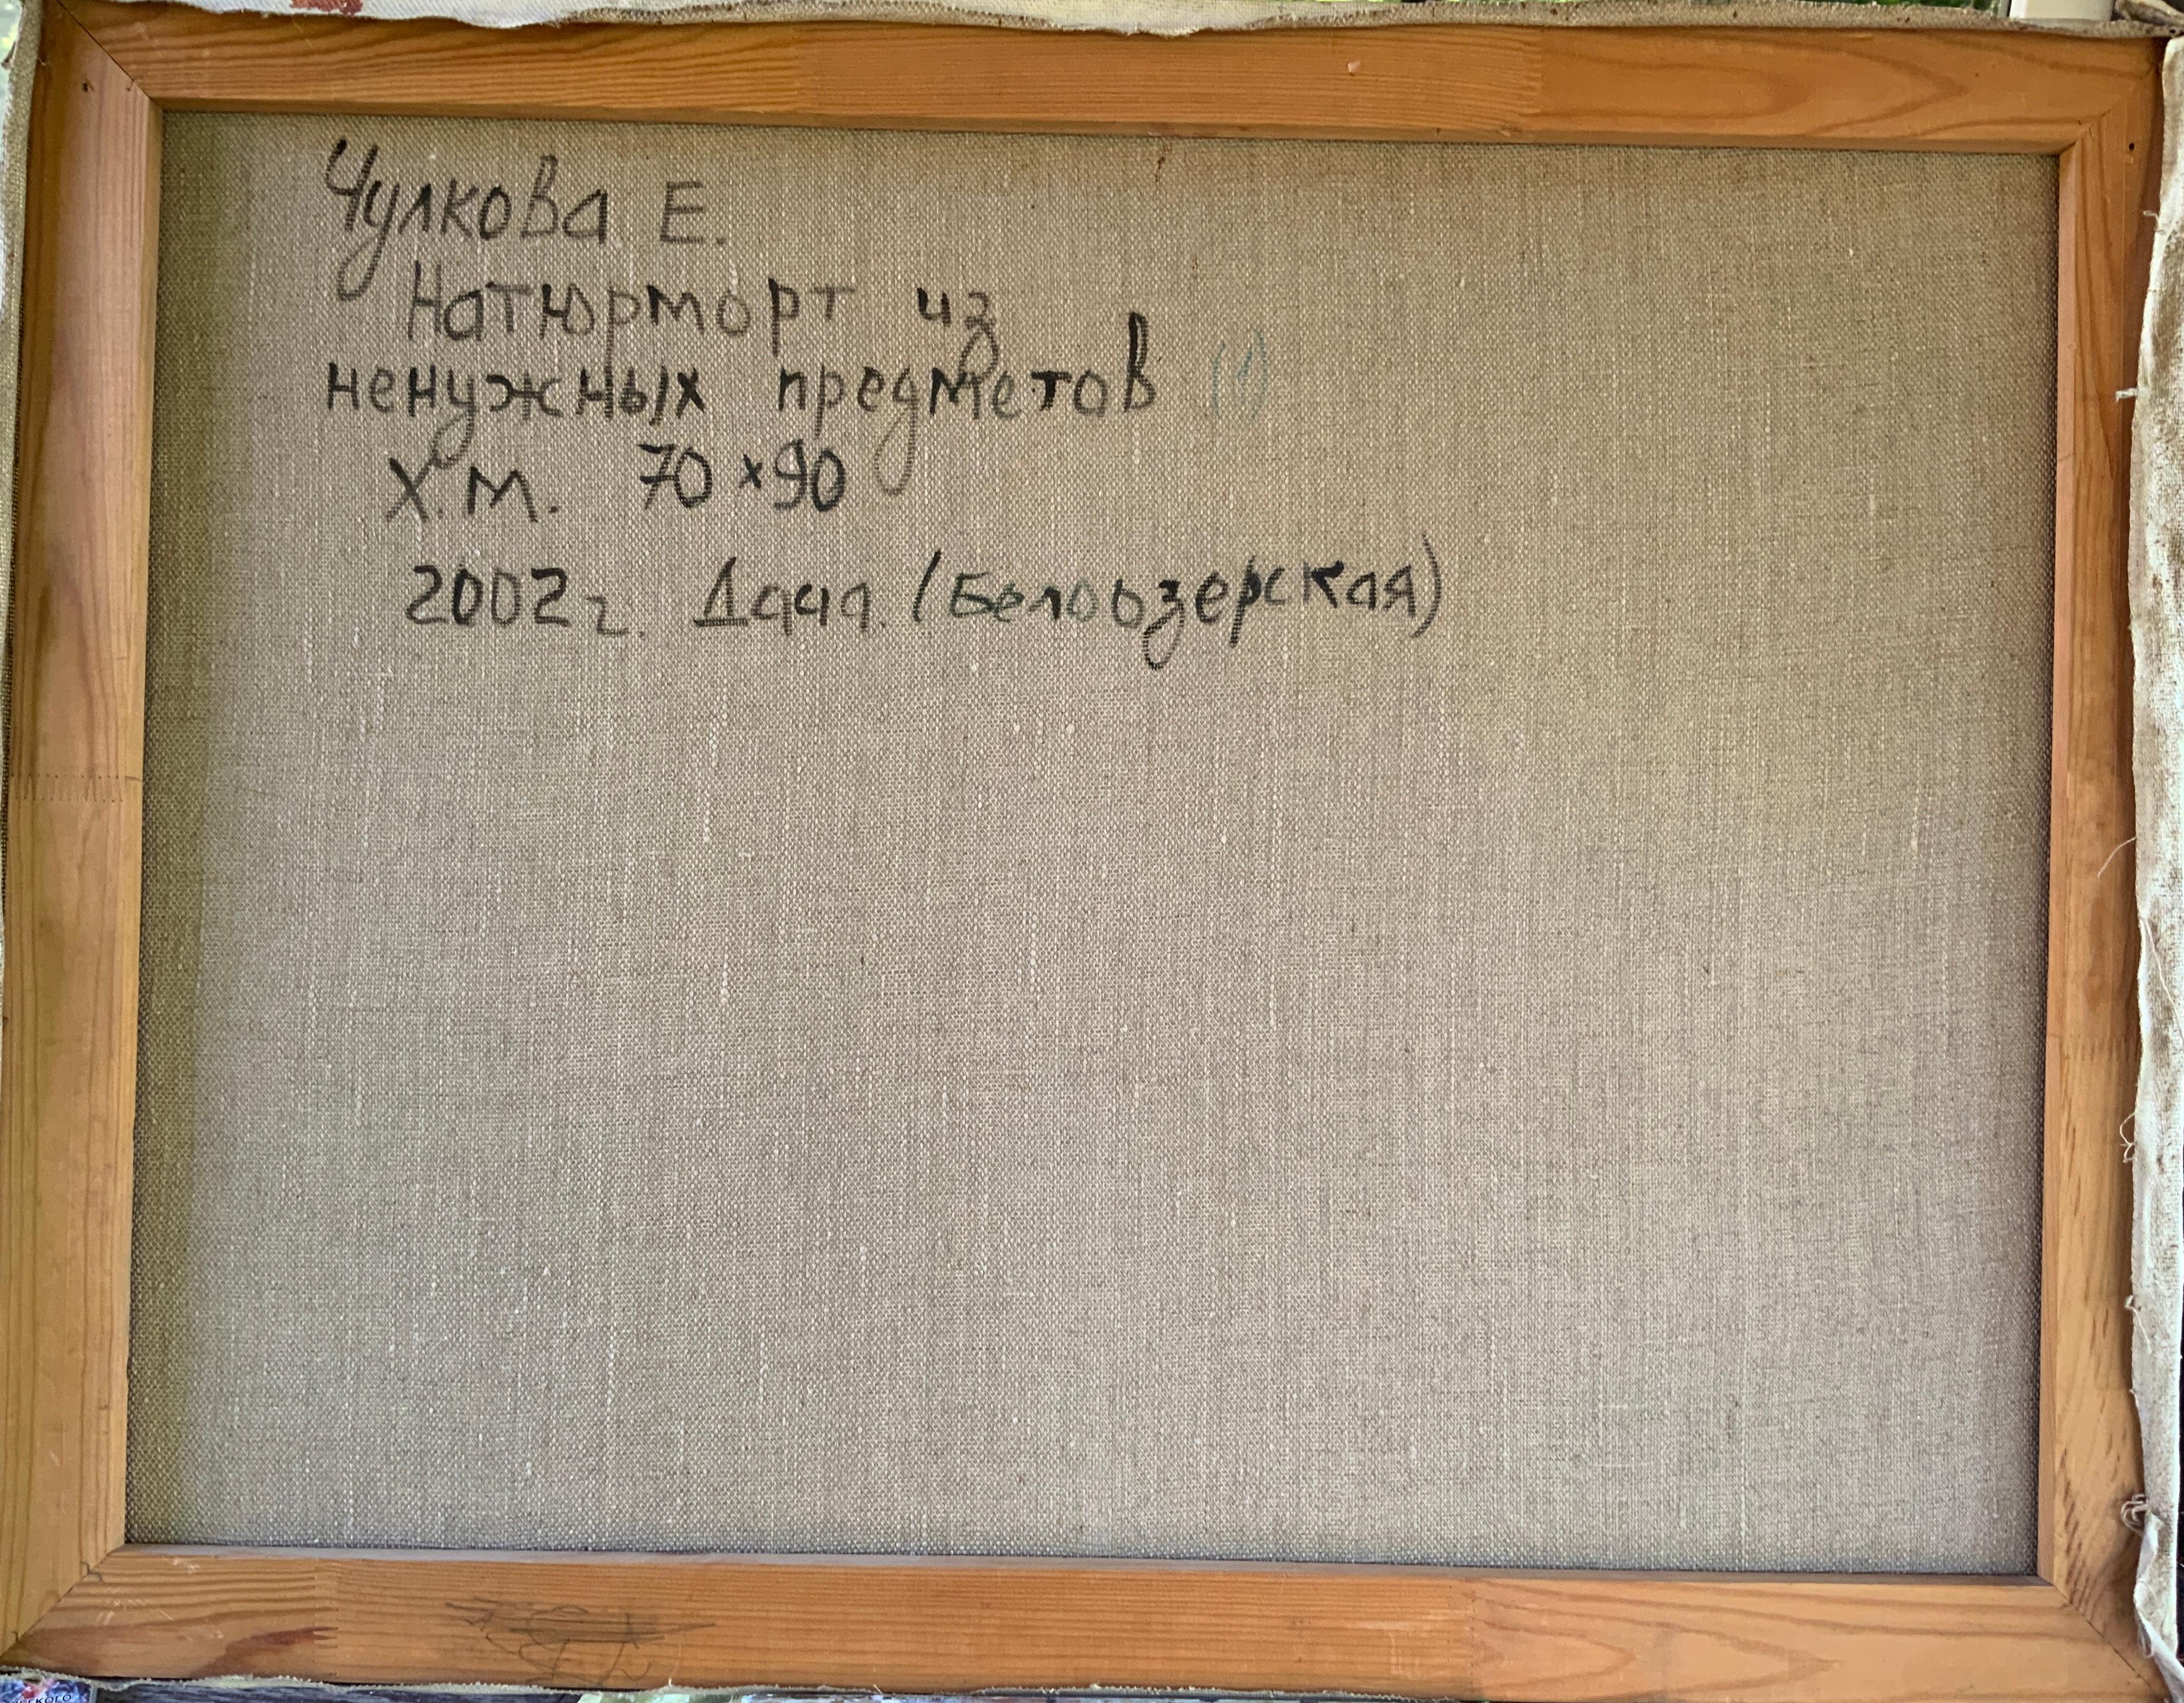 Чулкова Е.
Натюрморт из
ненужных предметов (1)
Х.М. 70×90
2002г. Дача. (Белоозерская)